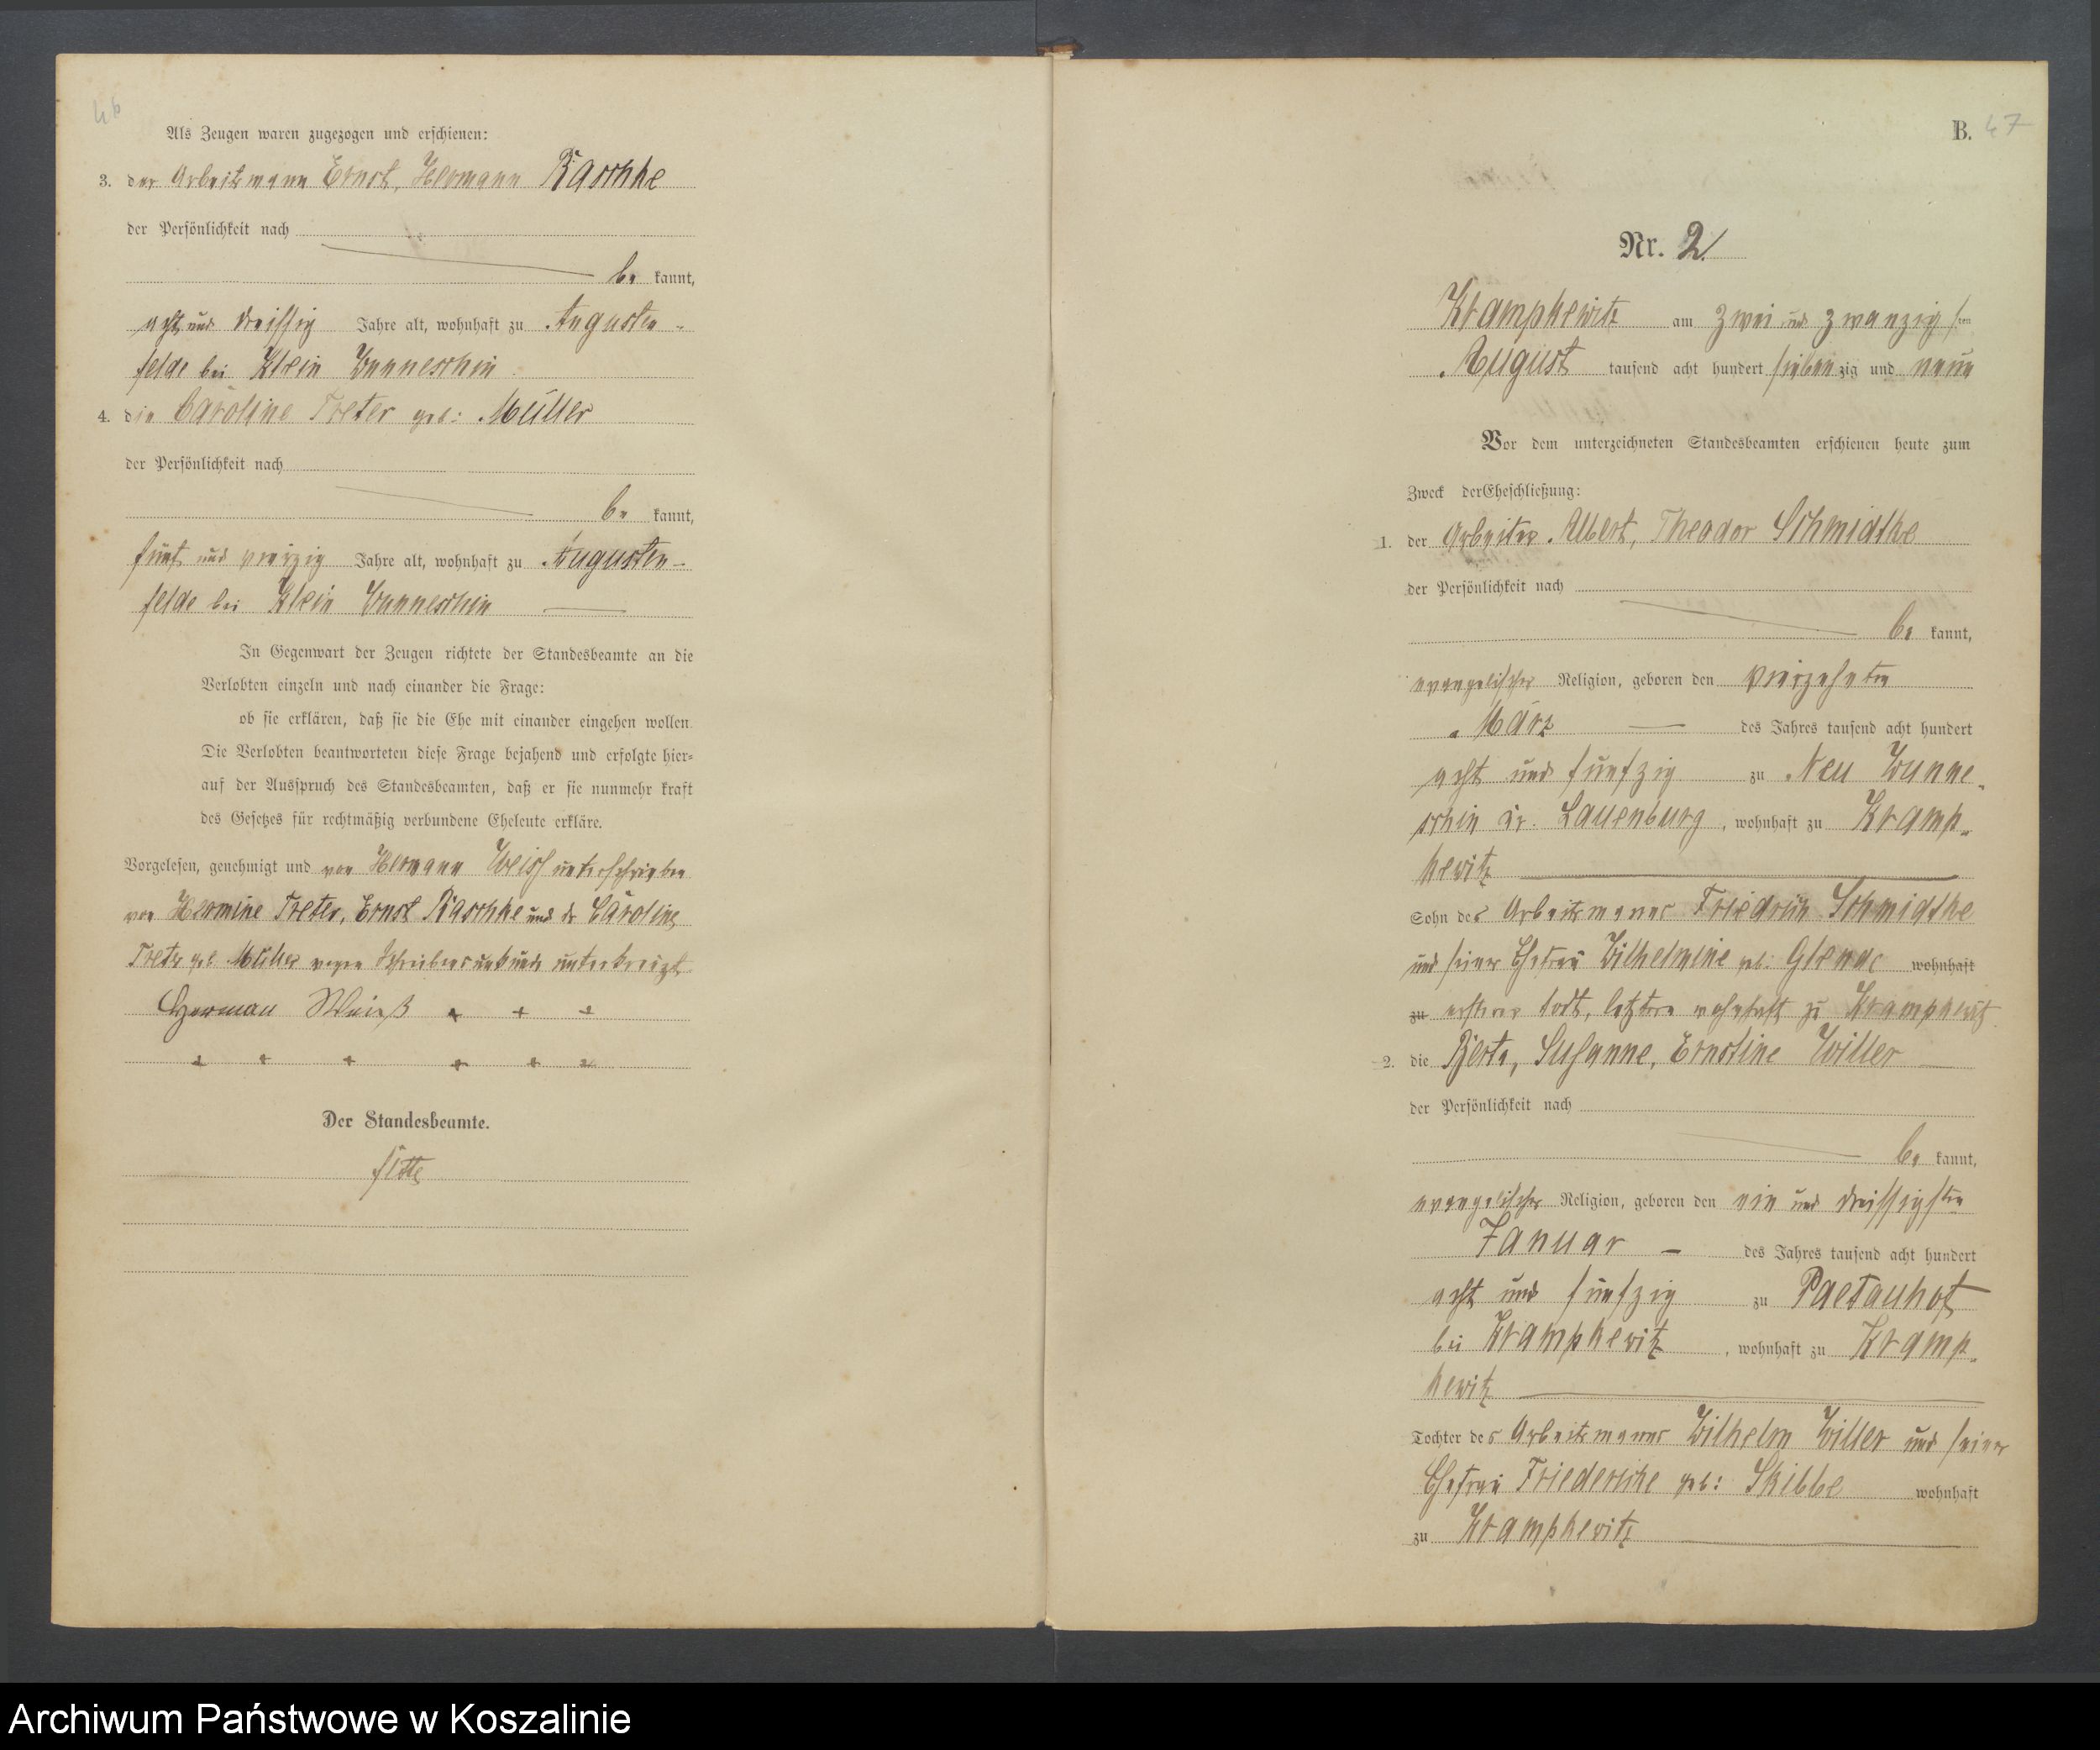 46
Als Zeugen waren zugezogen und erschienen:
3. der Arbeitsmann Ernst, Hermann Raschke
der Persönlichkeit nach
be kannt,
acht und dreissig Jahre alt, wohnhaft zu Augusten-
felde bei Klein Wunneschin
4. die Caroline Treter geb: Müller
der Persönlichkeit nach
be kannt,
fünf und vierzig Jahre alt, wohnhaft zu Augusten-
felde bei Klein Wunneschin
In Gegenwart der Zeugen richtete der Standesbeamte an die
Verlobten einzeln und nach einander die Frage:
ob sie erklären, daß sie die Ehe mit einander eingehen wollen.
Die Verlobten beantworteten diese Frage bejahend und erfolgte hier=
auf der Ausspruch des Standesbeamten, daß er sie nunmehr kraft
des Gesetzes für rechtmäßig verbundene Eheleute erkläre.
Vorgelesen, genehmigt und von Hermann Weiss unterschrieben
von Hermine Treter, Ernst Raschke und der Caroline
Treter geb Müller wegen Schreibensunkunde unterkreuzt
Herman Weiß + + +
+ + + + + +
Der Standesbeamte.
B. 47
Nr. 2.
Krampkewitz am zwei und zwanzigsten
August tausend acht hundert siebenzig und neun
Vor dem unterzeichneten Standesbeamten erschienen heute zum
Zweck der Eheschließung:
1. der Arbeiter Albert, Theodor Schmidtke
der Persönlichkeit nach
be kannt,
evangelischer Religion, geboren den vierzehnten
März des Jahres tausend acht hundert
acht und fünfzig zu Neu Wunne-
schin Kr. Lauenburg, wohnhaft zu Kramp-
kewitz
Sohn des Arbeitsmannes Friedrich Schmidtke
und seiner Ehefrau Wilhelmine geb: wohnhaft
zu ersterer todt, letztere wohnhaft zu Krampkewitz
2. die Berta, Susanne, Ernstine Willer
der Persönlichkeit nach
be kannt,
evangelischer Religion, geboren den ein und dreissigsten
Januar des Jahres tausend acht hundert
acht und fünfzig zu Paetauhof
bei Krampkewitz, wohnhaft zu Kramp-
kewitz
Tochter des Arbeitsmannes Wilhelm Willer und seiner
Ehefrau Friedericke geb: Skibbe wohnhaft
zu Krampkewitz
Archiwum Państwowe w Koszalinie